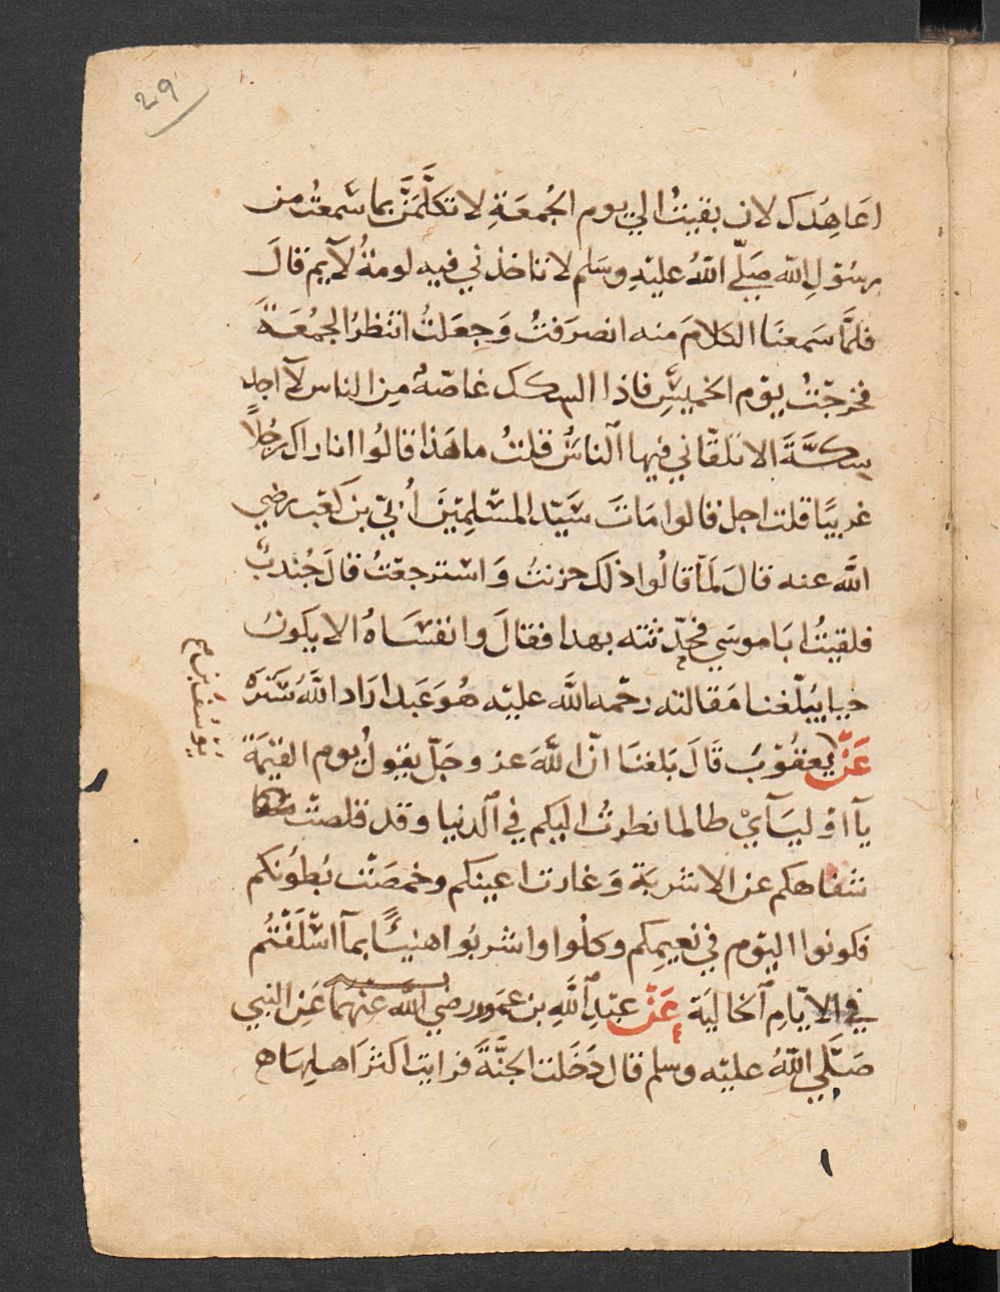 29
اعَاهِدَك لان بقيتُ الي يوم الجُمعَةِ لا تكلَّمَنَّ بما سمعتُ من
رسُوْلِ الله صَلّي اللهُ عليْهِ وسَلم لا تاخذني فيه لومةُ لآيم قالَ
فلمَّا سَمعنَا الكلامَ منه انصرَفتُ وَجعَلتُ انتظرُ الجمُعَةَ
فخرجْتُ يوْم الخميسِ فاذا السكك غاصّةٌ مِن الناس لآ اجد
سِكّةَ الا تلقّاني فيها الناسُ قلتُ ما هَذا قالُوا انا نراك رجُلاً
غريبًا قلت اجل قالوا مَاتَ سَيّد المسْلِمِيْنَ أُبيّ بن كَعْب رضي
الله عنه قالَ لَمّا قالُوا ذلك حزنتُ وَاسترجعْتُ قالَ جُندبٌ
فلقيتُ ابَا موسَي فحدّثته بهدا فقالَ وا نفسَاهُ الا يكون
حيا يبُلّغنا مَقالته رحْمه الله عليْه هُوَ عَبد ارَاد اللهُ سَترَهُ
عَنْ يعقُوْبَ قَالَ بَلغنَا انّ اللهَ عز وجَلّ يقولُ يوم القيٰمَة
يآ اوْليَآئيْ طالما نطرتُ اليكم في الدنيا وقد قلصَتْ
شفاهكم عن الاشربَة وَغارت اعينكم وخمصَتْ بُطوُنكم
فكونوا اليَوْم في نعيمِكم وكلُوا واشربُوا هنيئًا بمآ اسْلَفْتُم
في الايّامِ الخاليَة عَنْ عبْدِ اللهِ بن عمَرو رضي الله عنْهمَا عَنِ النبي
صَلَّي اللهُ عليْه وسلم قال دَخَلت الجنَّةَ فرايت اكثرَ اهلِهَا